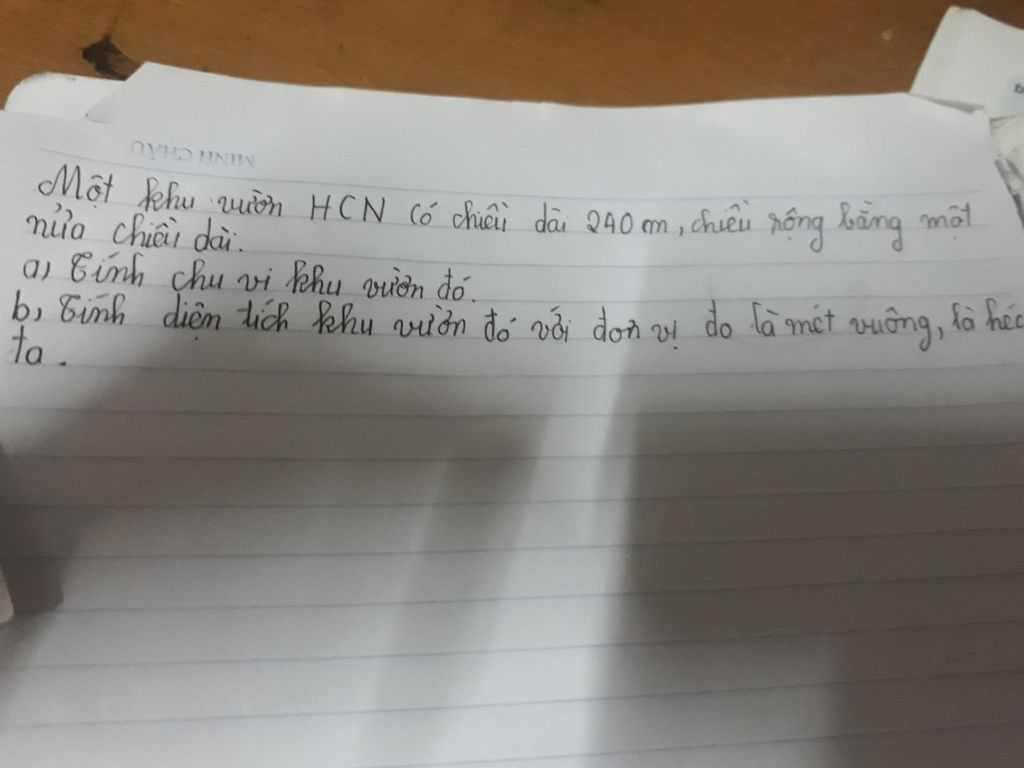 MINH CHÂU
Một khu vườn HCN có chiều dài 240 m, chiều rộng bằng một
nửa chiều dài.
a) Tính chu vi khu vườn đó.
b) Tính diện tích khu vườn đó với đơn vị đo là mét vuông, là héc
ta.